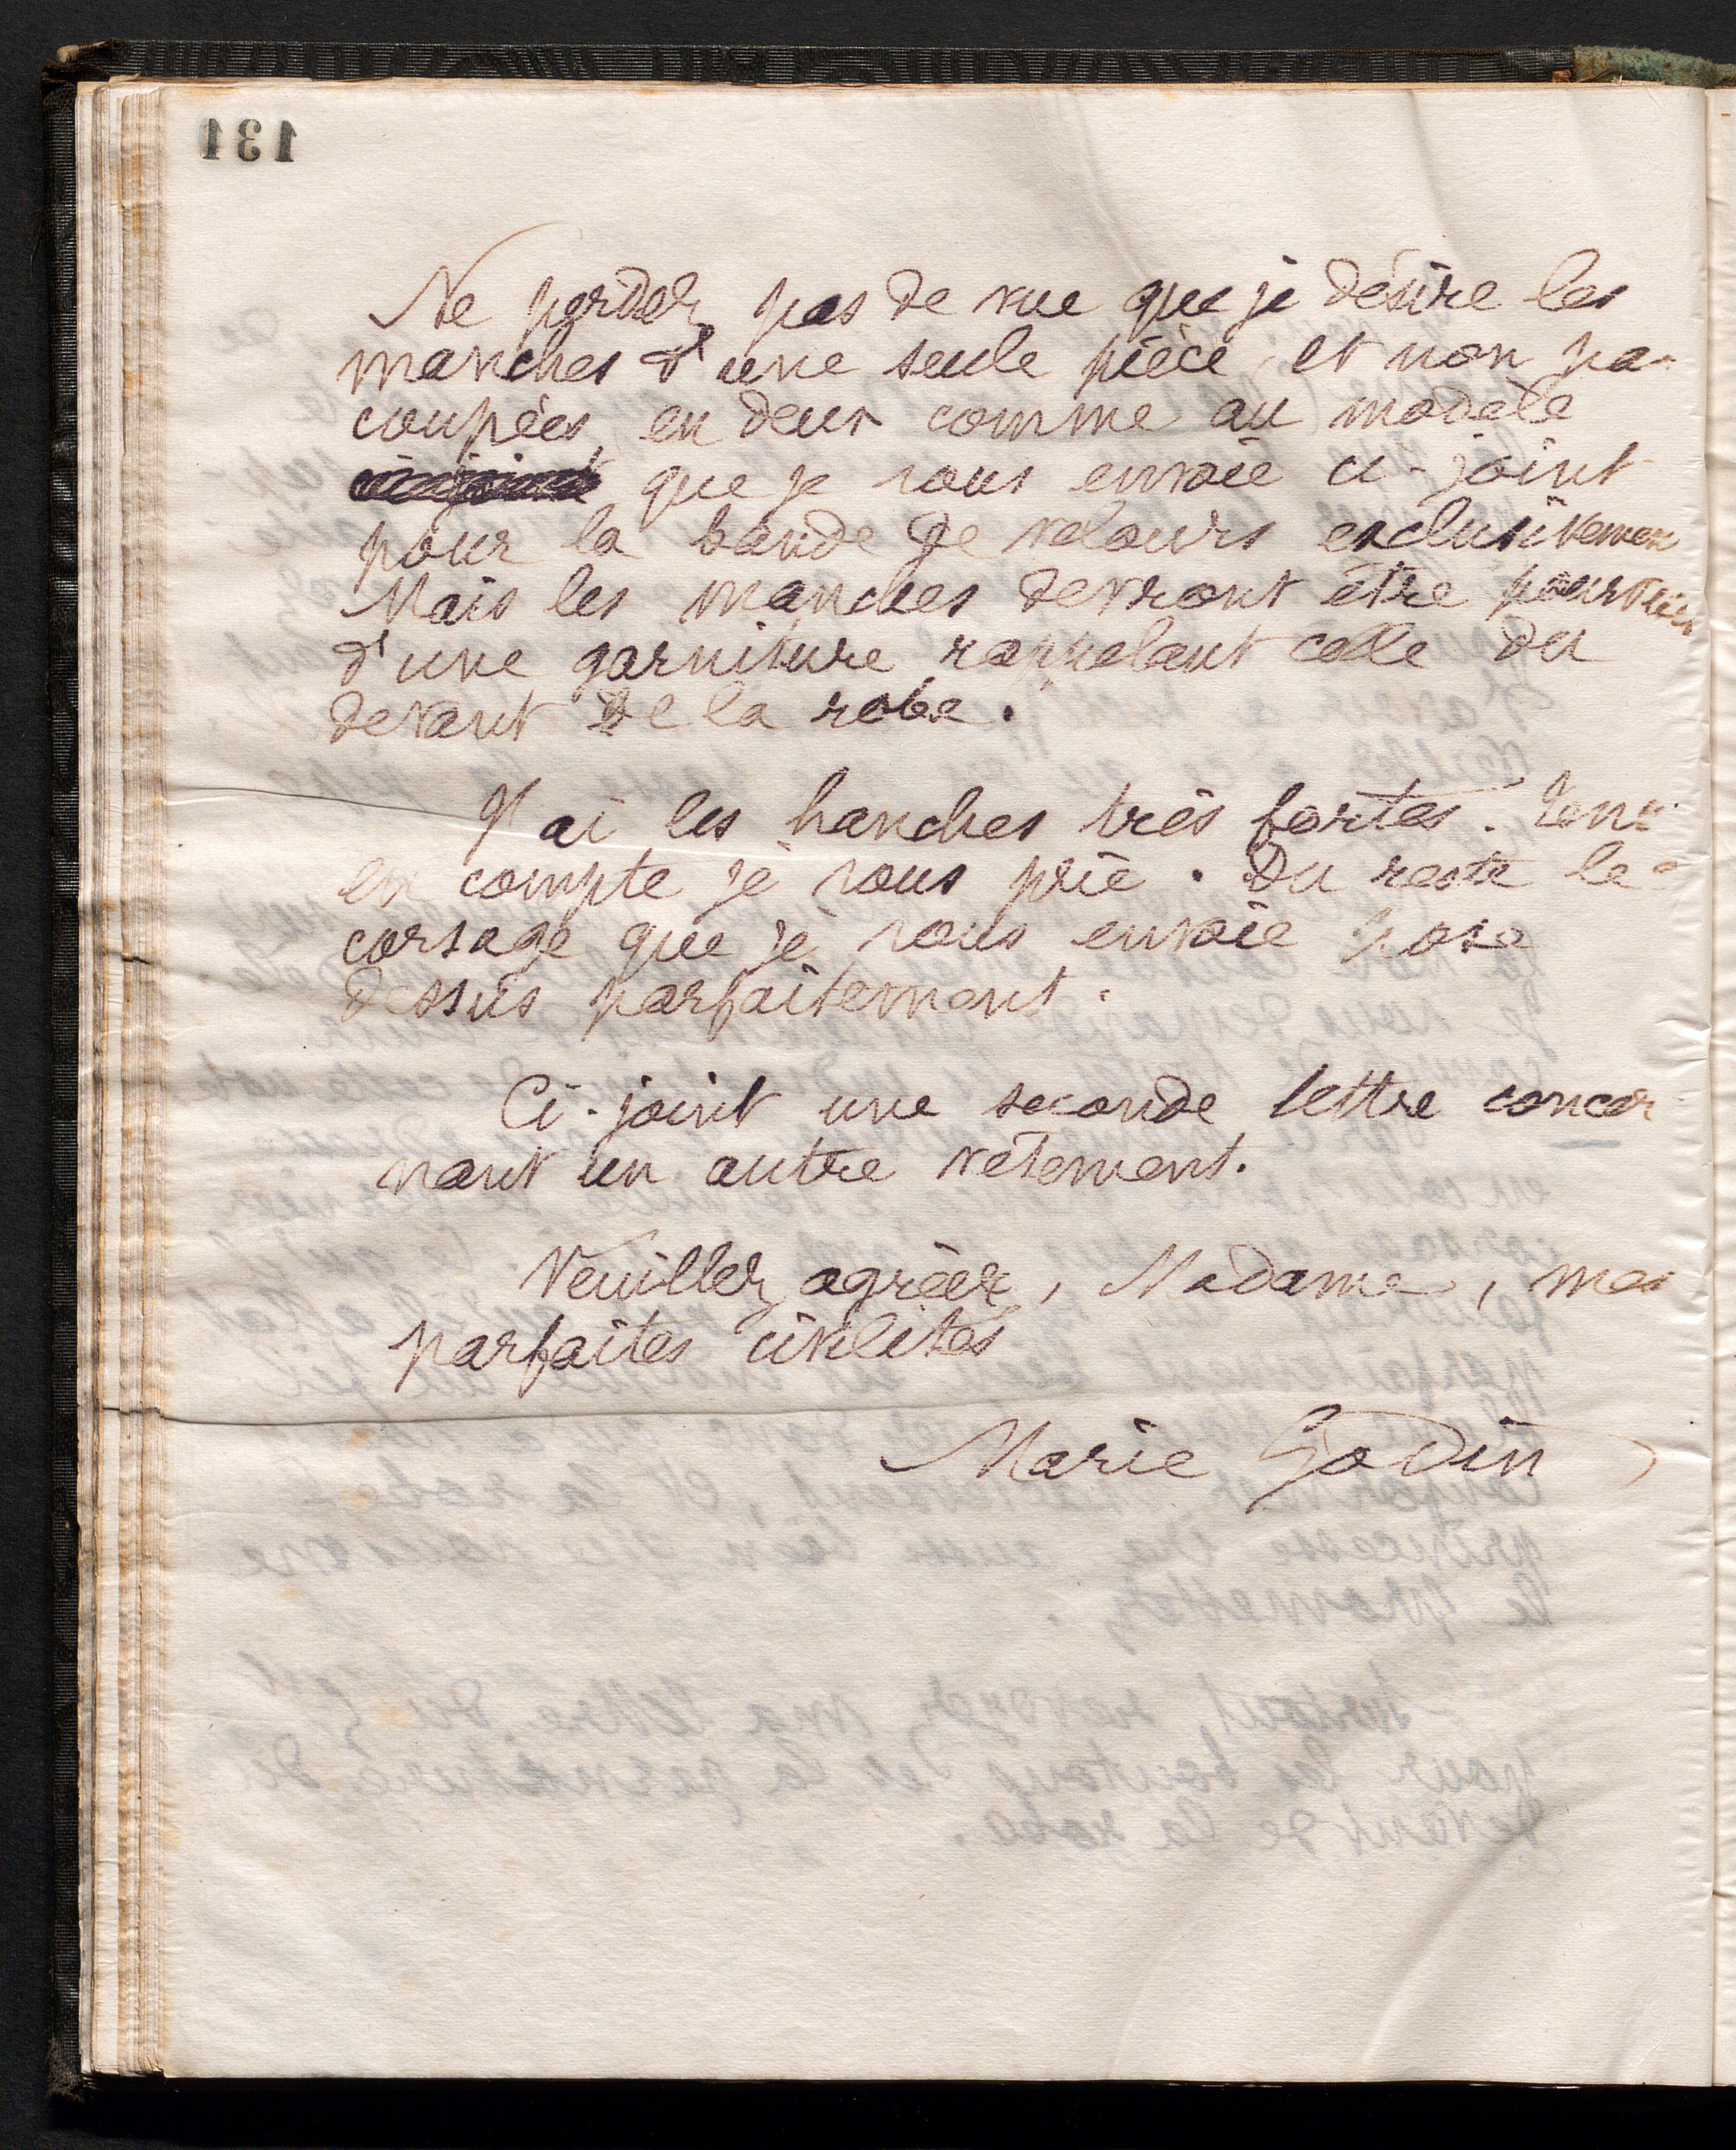 131
Ne perdez pas de vue que je désire les
manches d'une seule pièce, et non pas
coupées en deux comme au modèle
que je vous envoie ci-joint
pour la bande de velours exclusivemen
Mais les manches devront être pourvues
d'une garniture rappelant celle du
devant de la robe.
J'ai les hanches très fortes. Tenez
en compte je vous prie. Du reste le
corsage que je vous envoie pose
dessus parfaitement.
Ci-joint une seconde lettre concer
nant un autre vêtement.
Veuillez agréer, Madame, mes
parfaites civilités
Marie Godin